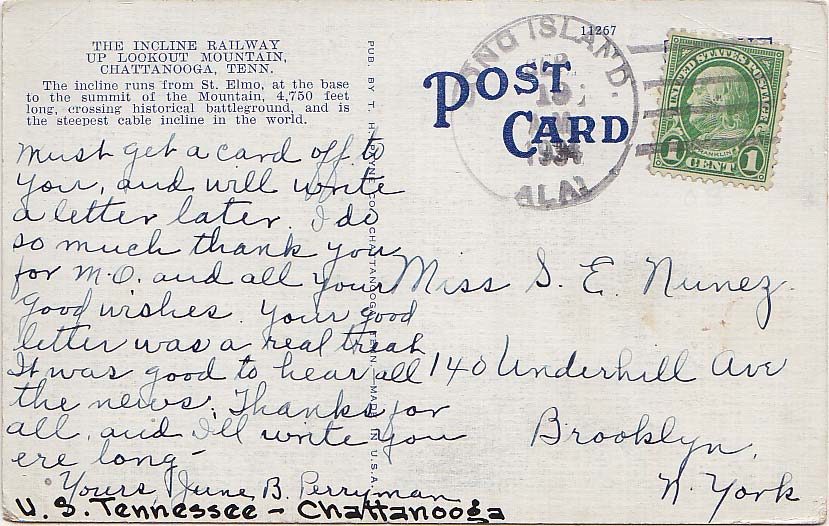 THE INCLINE RAILWAY
UP LOOKOUT MOUNTAIN,
CHATTANOOGA, TENN.
The incline runs from St. Elmo, at the base
to the summit of the Mountain, 4,750 feet
long, crossing historical battleground, and is
the steepest cable incline in the world.
Must get a card off to
you, and will write
a letter later. I do
so much thank you
for M.O. and all your
good wishes. Your good
letter was a real treat
It was good to hear all
the news. Thanks for
all, and I'll write you
ere long-
Yours, June B. Perryman
U.S. Tennessee - Chattanooga
PUB. BY T. H. PAYNE CO., CHATTANOOGA, TENN.—MADE IN U.S.A.
11267
POST
CARD
LONG ISLAND.
19
1934
ALA.
UNITED STATES POSTAGE
FRANKLIN
1 CENT 1
Miss S. E. Nunez.
140 Underhill Ave
Brooklyn,
N. York